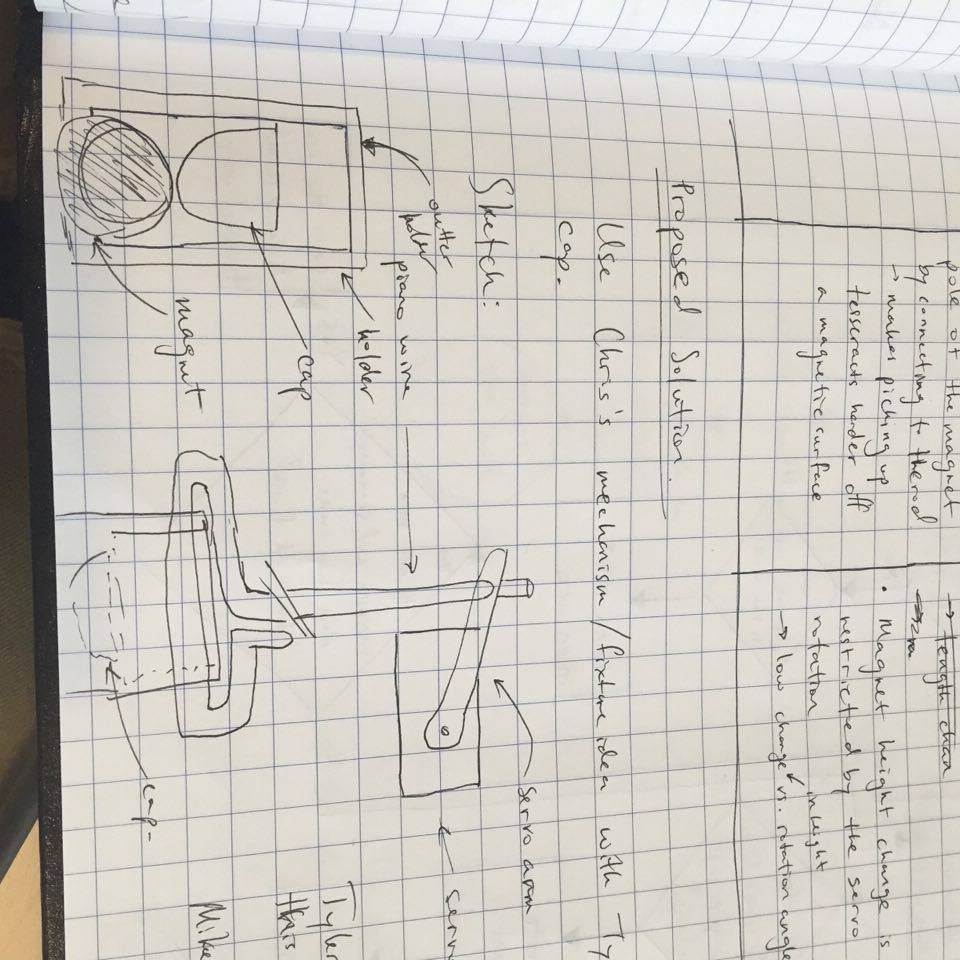 pole of the magnet
by connecting to the rod
→ makes picking up
tesseracts harder off
a magnetic surface
→ length chan
• Magnet height change is
restricted by the servo
rotation
in height
→ low change vs. rotation angle
Proposed Solution.
Use Chris's mechanism/fixture idea with Ty
cap.
Sketch:
outter
holder
holder
cap
magnet
piano wire
servo arm
serv
cap.
Tyler
Mike